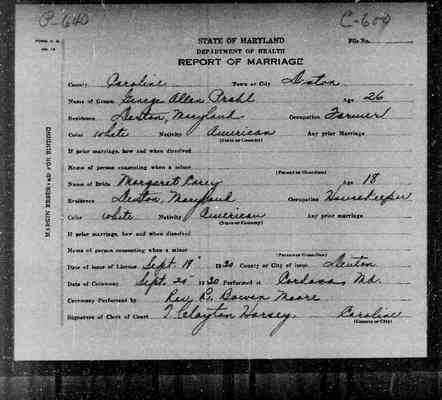 P-640 C-600
STATE OF MARYLAND
DEPARTMENT OF HEALTH
REPORT OF MARRIAGE
File No.
County Caroline Town or City Denton
Name of Groom George Allen Age 26
Residence Denton, Maryland Occupation Farmer
Color White Nativity American Any prior Marriage
(State or Country)
If prior marriage, how and when dissolved
Name of person consenting when a minor
(Parent or Guardian)
Name of Bride Margaret Carey Age 18
Residence Denton, Maryland Occupation Housekeeper
Color White Nativity American Any prior marriage
(State or Country)
If prior marriage, how and when dissolved
Name of person consenting when a minor
(Parent or Guardian)
Date of Issue of License Sept. 19" 1930 County or City of issue Denton
Date of Ceremony Sept. 20" 1930 Performed at Cordova Md.
Ceremony Performed by Rev. Bowen Moore
Signature of Clerk of Court T. Clayton Horsey. Caroline
(County or City)
MARGIN RESERVED FOR BINDING